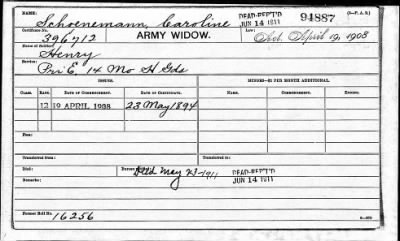 NAME: Schoenemann, Caroline DEAD-REPT'D JUN 14 1911 94887
Certificate No. 396712 ARMY WIDOW. Law: Act April 19, 1908
Name of Soldier: Henry
Service: Pri E, 14 Mo H Gds
ISSUES. MINORS—$2 PER MONTH ADDITIONAL.
CLASS. RATE. DATE OF COMMENCEMENT. DATE OF CERTIFICATE. NAME. COMMENCEMENT. ENDING.
12 19 APRIL 1908 23 May 1894
Transferred from
Transferred to
Died: Died May 23-1911 DEAD-REPT'D JUN 14 1911
Remarks:
Former Roll No. 16256